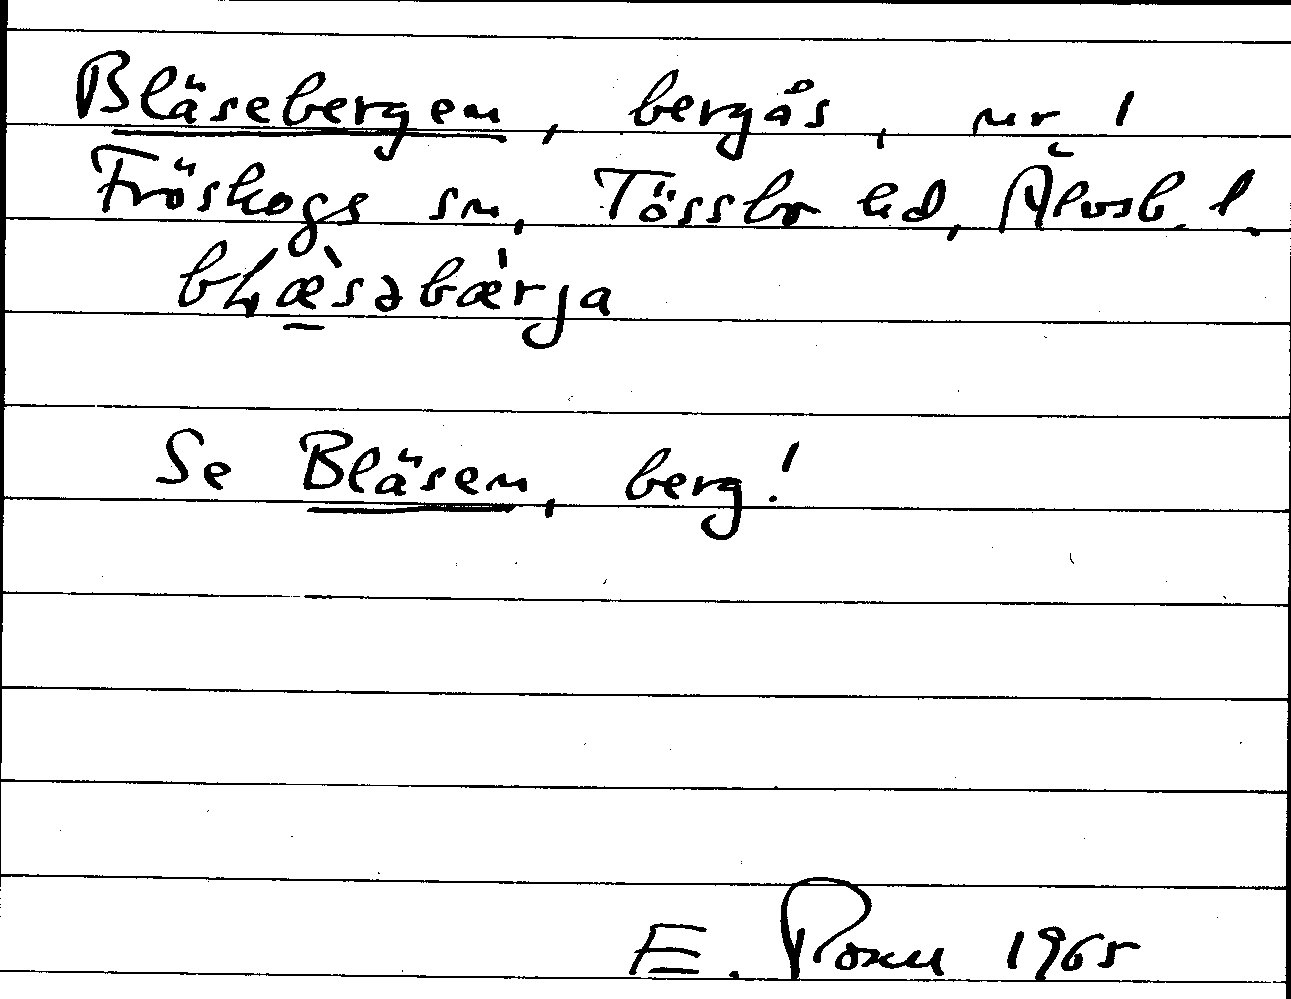 Bläsebergen, bergås, nr 1
Fröskogs sn, Tössbo hd, Älvsb. l.
bḷæ̀səbæ̀rja
Se Bläsen, berg!
E. 1965